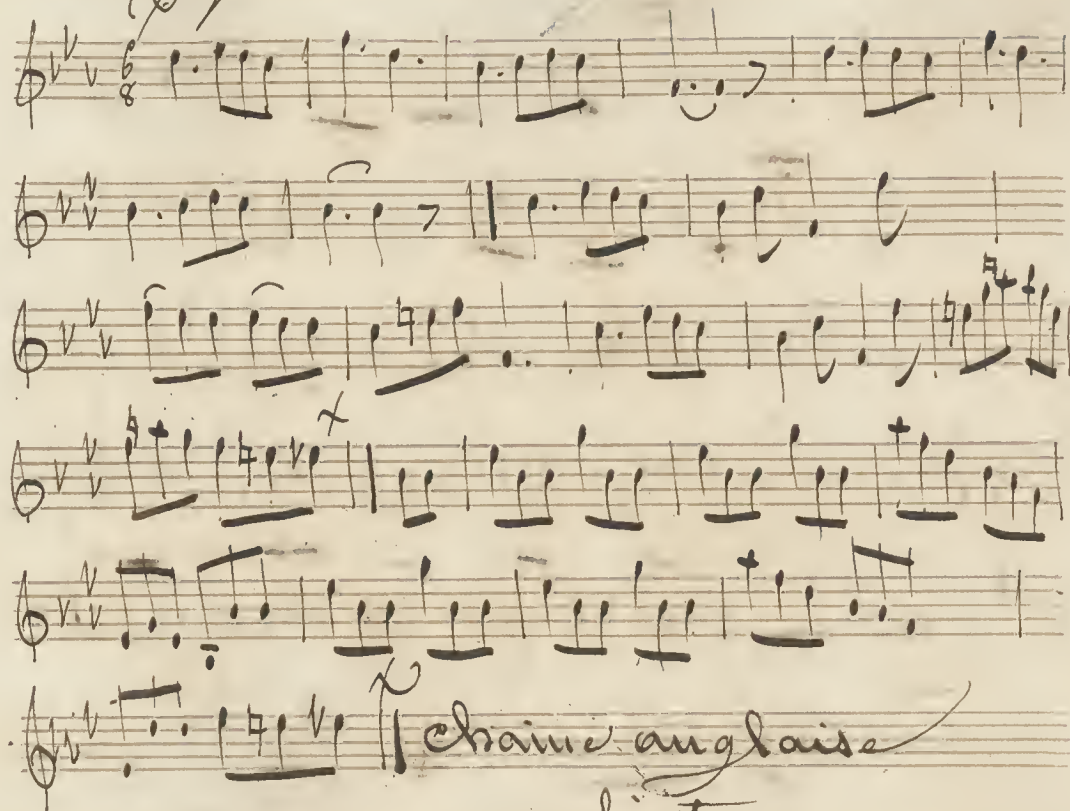 6
8
chaine anglaise